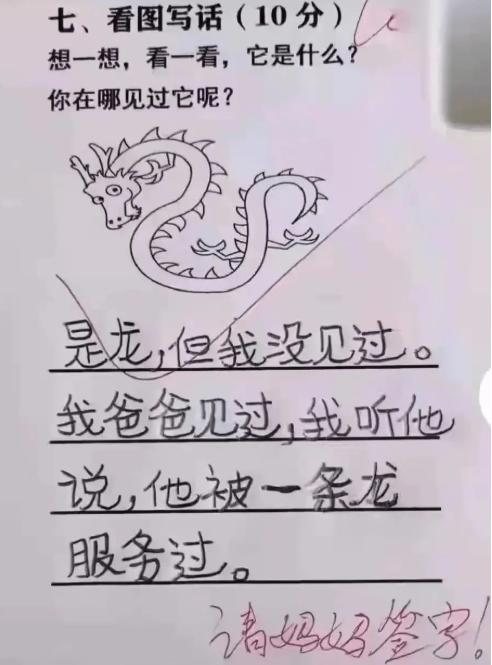 七、看图写话（10 分）
想一想，看一看，它是什么？
你在哪见过它呢？
是龙，但我没见过。
我爸爸见过，我听他
说，他被一条龙
服务过。
请妈妈签字！